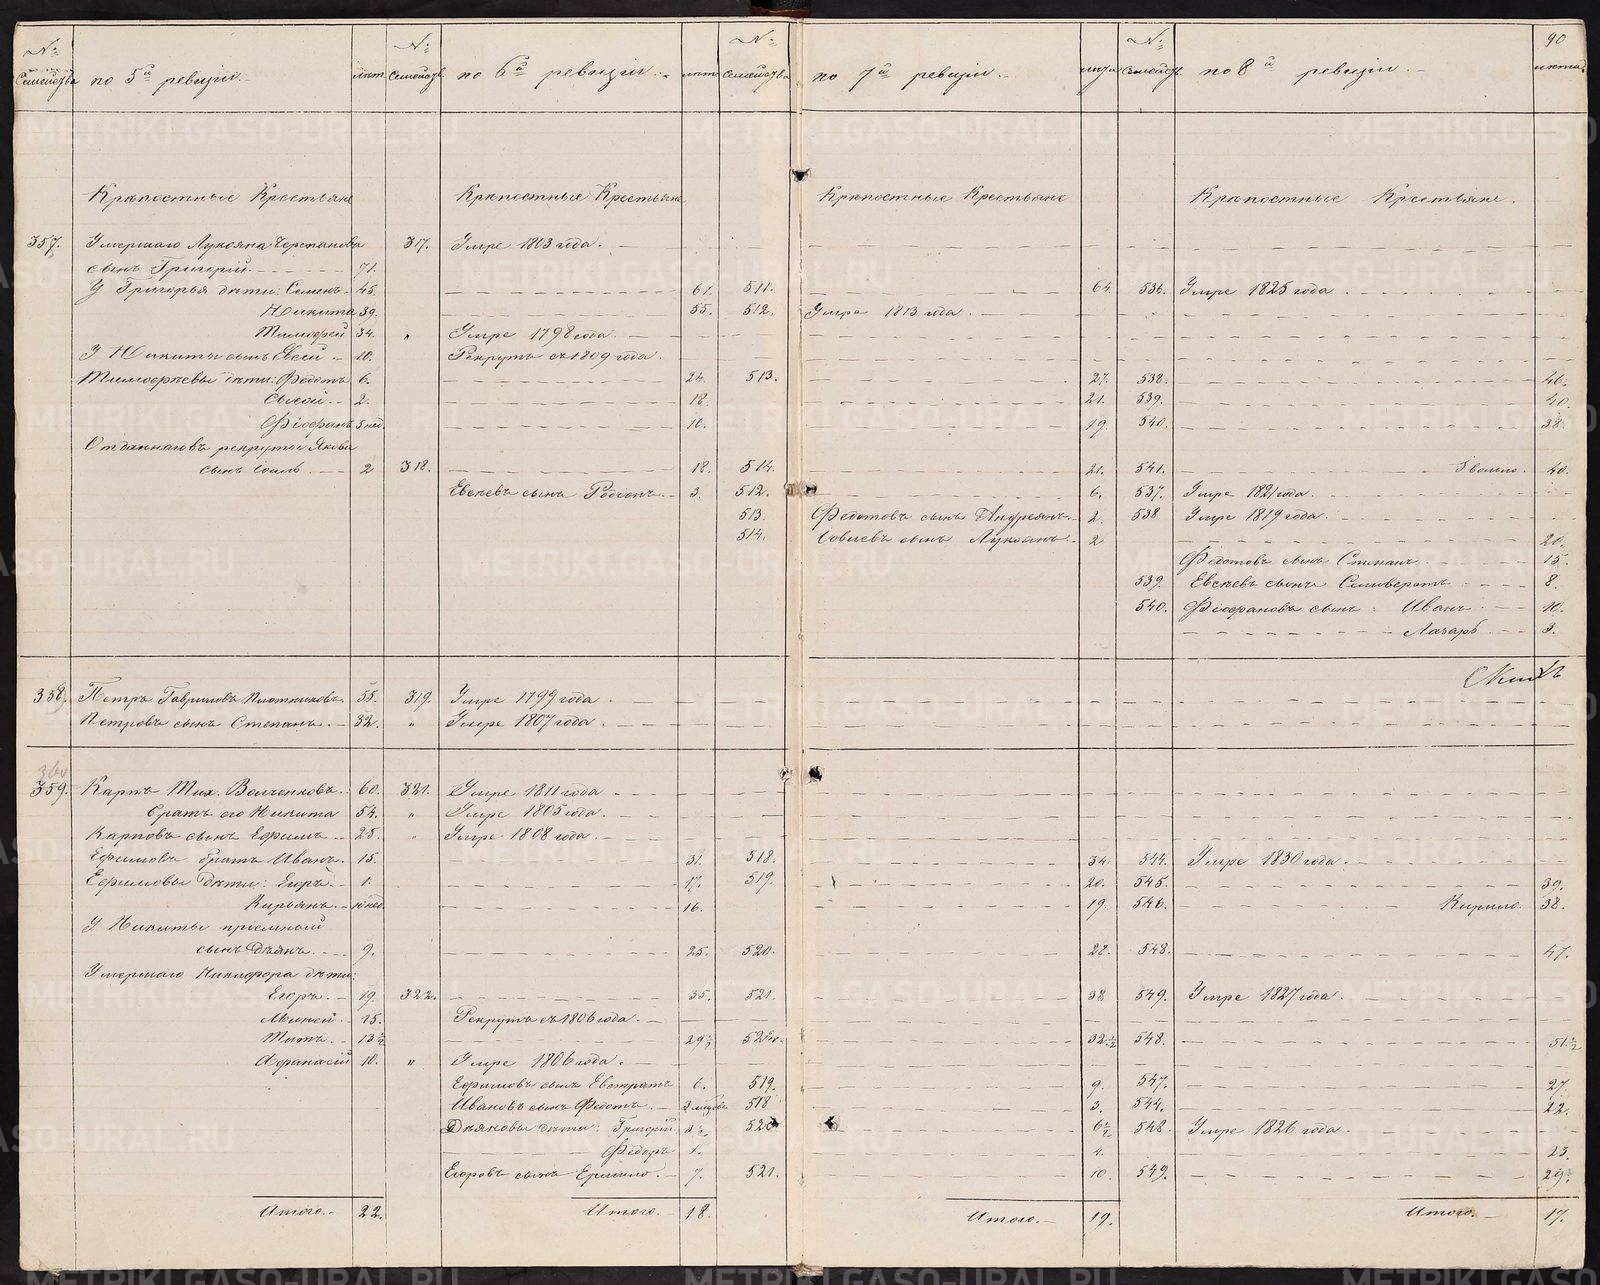 90
№ Семейства по 5й ревизіи лѣта № Семейства по 6й ревизіи лѣта № Семейства по 7й ревизіи лѣта № Семейства по 8й ревизіи лѣта
Крѣпостные Крестьяне Крѣпостные Крестьяне Крѣпостные Крестьяне Крѣпостные Крестьяне.
357. Умершаго Лукояна Черепанова 317. Умре 1803 года.
сынъ Григорій 71.
У Григорья дѣти: Семенъ 45. 61. 511. 64. 536. Умре 1825 года
Никита 39. 55. 512. Умре 1813 года.
Тимофей 34. " Умре 1798 года
У Никиты сынъ Евсей 10. Рекрутъ съ 1809 года.
Тимофѣевы дѣти: Федотъ 6. 24. 513. 27. 538. 46.
Сысой 2. 18. 21. 539. 40.
Фіофанъ 5 нед 16. 19. 540. 38.
Отданнаго въ рекруты Якова
сынъ 2 318. 18. 514. 21. 541. 40.
Евсѣевъ сынъ Родіонъ 3. 512. 6. 537. Умре 1821 года.
513. Федотовъ сынъ Андреянъ 2. 538 Умре 1819 года.
514. сынъ Лукоянъ 2 20.
Федотовъ сынъ Степанъ 15.
539. Евсѣевъ сынъ Селиверстъ 8.
540. Фіофановъ сынъ: Иванъ 10.
Лазарь 3.
358. Петръ Гавриловъ Плотниковъ 55. 319. Умре 1799 года
Петровъ сынъ Степанъ 32. " Умре 1807 года.
360
359. Карпъ Мих. Волченковъ 60. 321. Умре 1811 года
Братъ его Никита 54. " Умре 1805 года.
Карповъ сынъ Ефимъ 25. " Умре 1808 года.
Ефимовъ братъ Иванъ 15. 31. 518. 34. 544. Умре 1830 года.
Ефимовы дѣти: Егоръ 1. 17. 519. 20. 545. 39.
Кирьянъ 10 нед. 16. 19. 546. Кирило 38.
У Никиты пріемный
сынъ Дѣянъ 9. 25. 520. 28. 548. 47.
Умершаго Никифора дѣти:
Егоръ 19. 322. 35. 521. 38 549. Умре 1827 года.
Миней 15. Рекрутъ съ 1806 года.
Титъ 13½ 29½ 32½ 548. 51½
Афанасій 10. " Умре 1806 года.
Ефимовъ сынъ Евстратъ 6. 519. 9. 547. 27.
Ивановъ сынъ Федотъ 518 3. 544. 22.
Дѣяновы дѣти: Григорій 3½ 520 6½ 548. Умре 1826 года.
Федоръ 1. 4. 23.
Егоровъ сынъ Ермило 7. 521. 10. 549. 29.
Итого 22. Итого 18. Итого 19. Итого 17.
METRIKI.GASO-URAL.RU